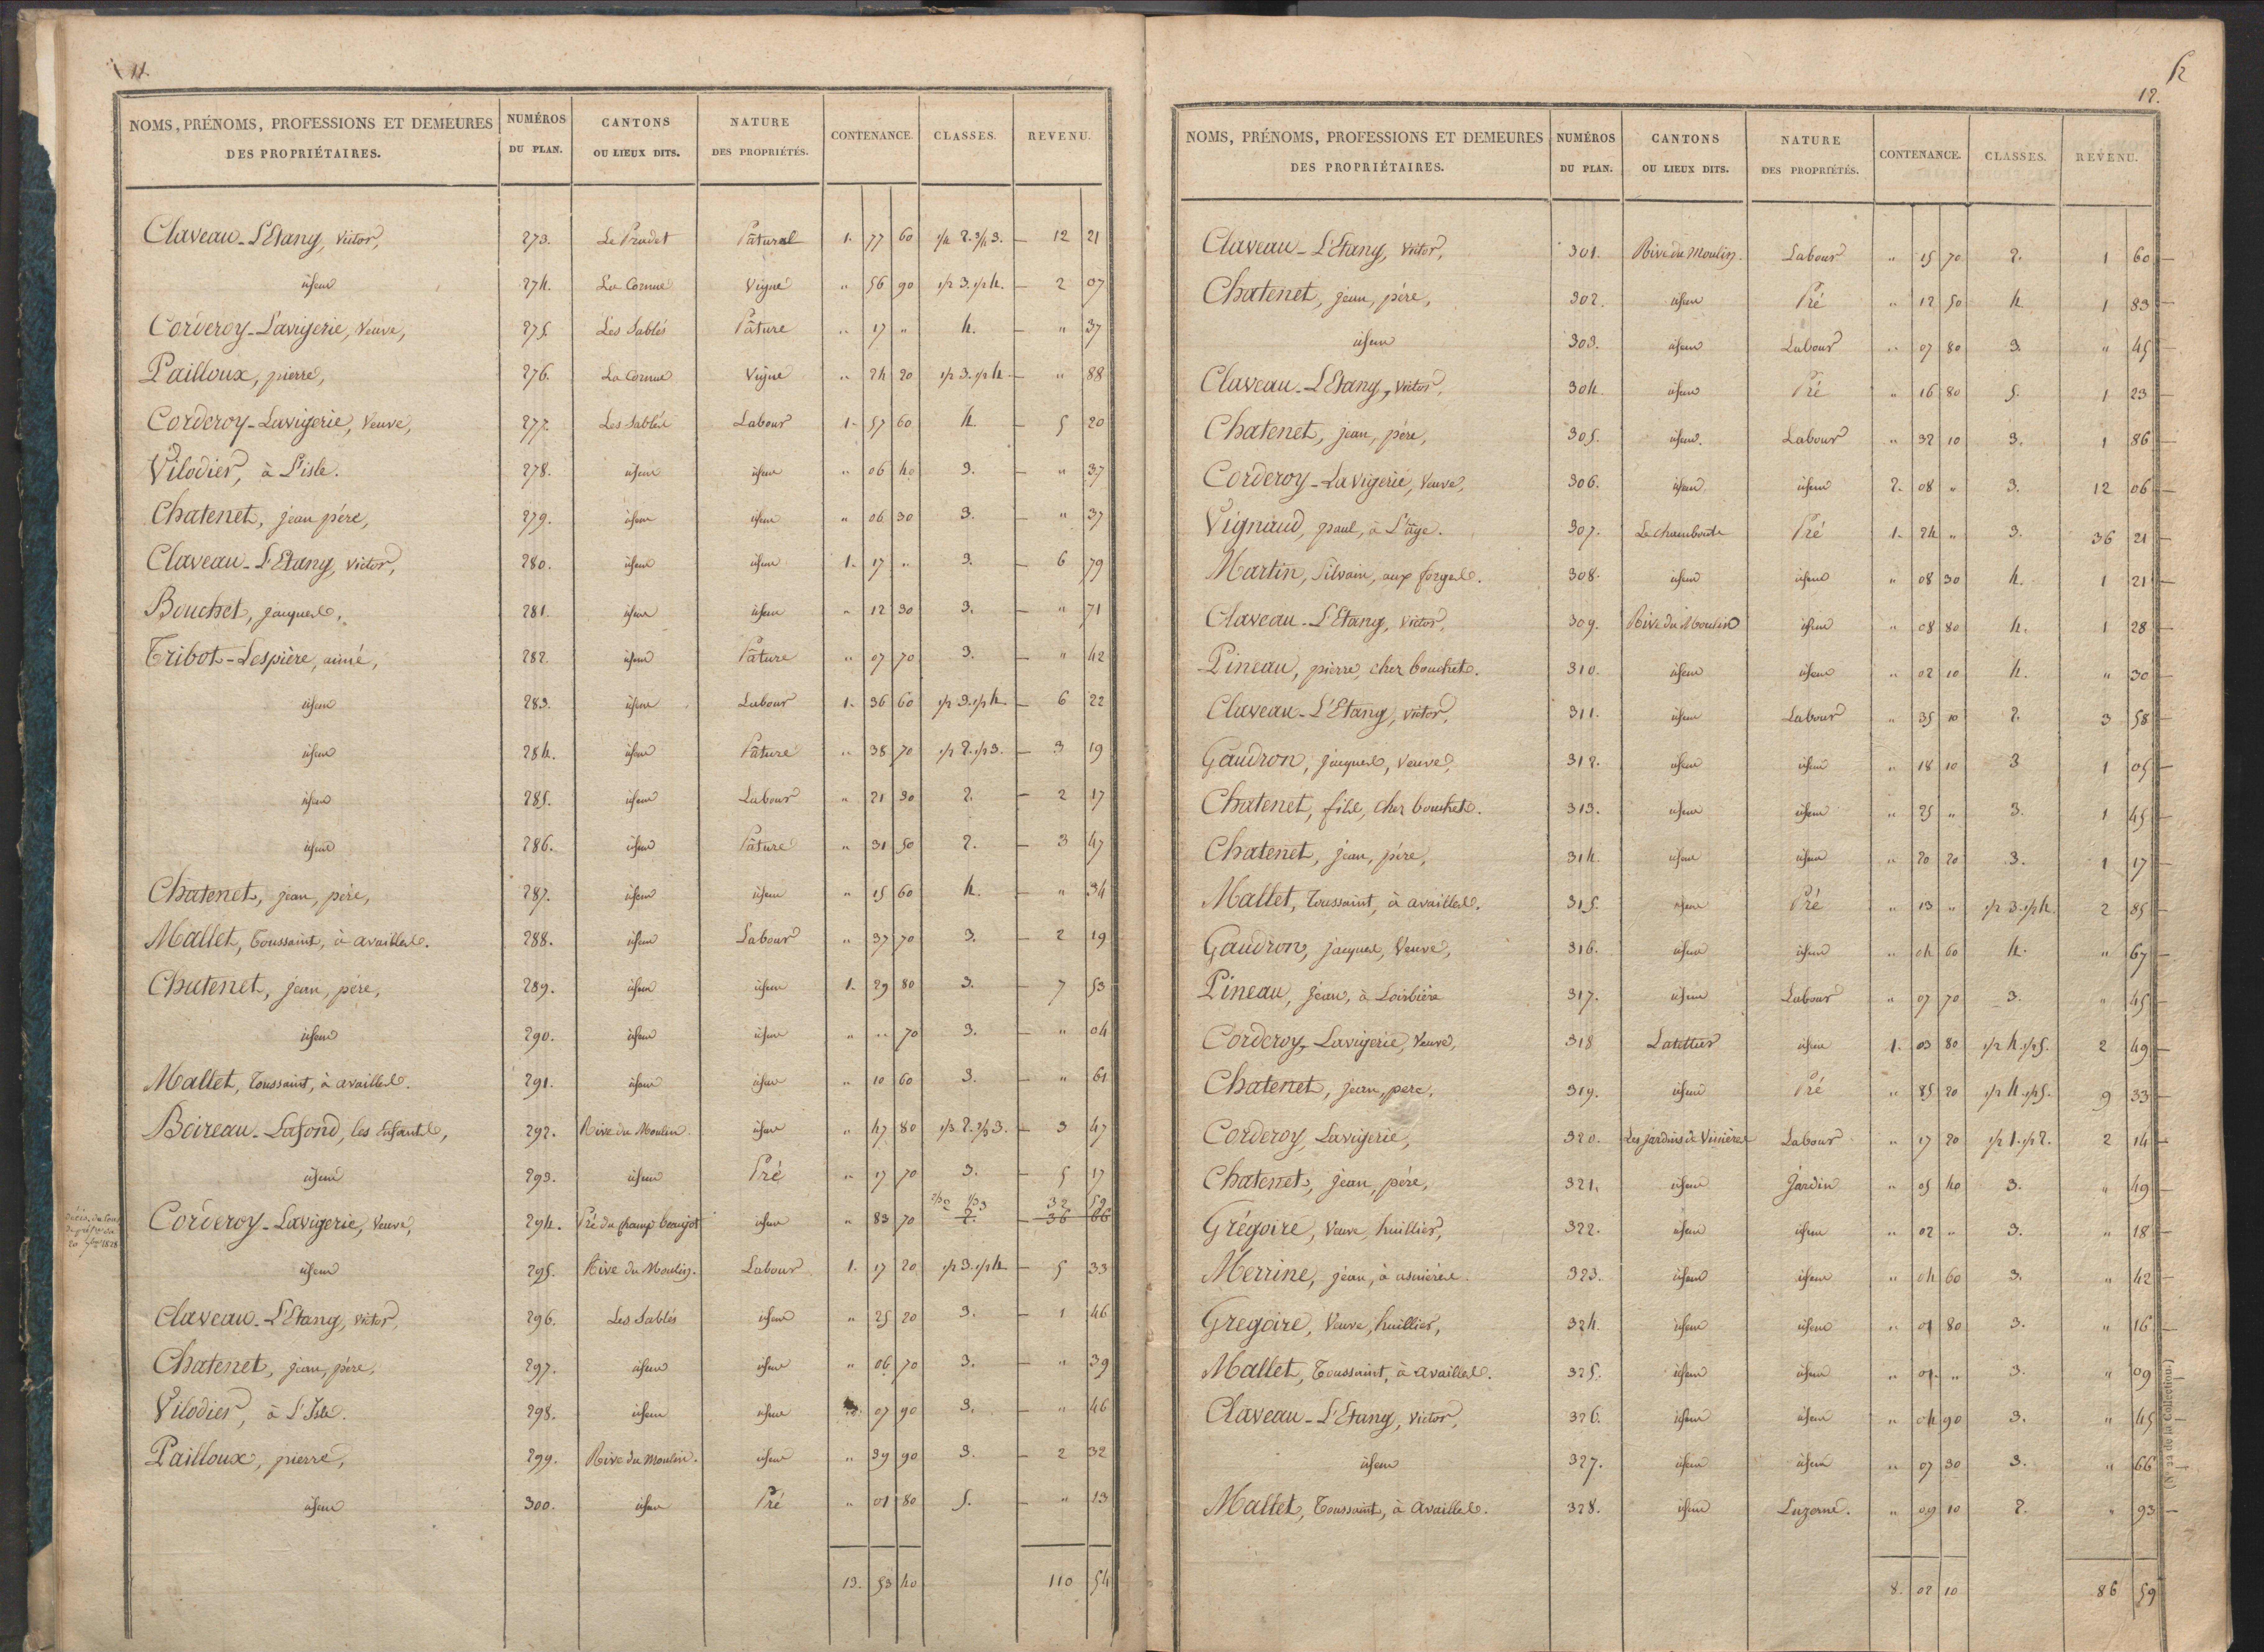 11.
NOMS, PRÉNOMS, PROFESSIONS ET DEMEURES DES PROPRIÉTAIRES. NUMÉROS DU PLAN. CANTONS OU LIEUX DITS. NATURE DES PROPRIÉTÉS. CONTENANCE. CLASSES. REVENU.
Claveau-L'Etang, Victor, 273. Le Pradet Pâtural 1. 77 60 12 21
idem 274. La Cornue Vigne " 56 90 1/2 3. 1/2 4. 2 07
Corderoy-Lavigerie, Veuve, 275. Les Sablés Pâture " 17 " 4. " 37
Pailloux, pierre, 276. La Cornue Vigne " 24 20 1/2 3. 1/2 4. " 88
Corderoy-Lavigerie, Veuve, 277. Les Sablés Labour 1. 57 60 4. 5 20
Vilodier, à L'isle. 278. idem idem " 06 40 3. " 37
Chatenet, jean père, 279. idem idem " 06 30 3. " 37
Claveau-L'Etang, Victor, 280. idem idem 1. 17 " 3. 6 79
Bouchet, jacques, 281. idem idem " 12 30 3. " 71
Tribot-Lespière, aimé, 282. idem Pâture " 07 70 3. " 42
idem 283. idem Labour 1. 36 60 1/2 3. 1/2 4. 6 22
idem 284. idem Pâture " 38 70 1/2 2. 1/2 3. 3 19
idem 285. idem Labour " 21 30 2. 2 17
idem 286. idem Pâture " 31 50 2. 3 47
Chatenet, jean, père, 287. idem idem " 15 60 4. " 34
Mallet, Toussaint, à availles. 288. idem Labour " 37 70 3. 2 19
Chatenet, jean, père, 289. idem idem 1. 29 80 3. 7 53
idem 290. idem idem " " 70 3. " 04
Mallet, Toussaint, à availles. 291. idem idem " 10 60 3. " 61
Boireau-Lafond, les Enfants, 292. Rive du Moulin idem " 47 80 1/3 2. 2/3 3. 3 47
idem 293. idem Pré " 17 70 3. 5 17
2/3 2 1/3 3 32 59
Corderoy-Lavigerie, Veuve, 294. Pré du Champ beaujot idem " 83 70 2. 36 66
idem 295. Rive du Moulin. Labour 1. 17 20 1/2 3. 1/2 4. 5 33
Claveau-L'Etang, Victor, 296. Les Sablés idem " 25 20 3. 1 46
Chatenet, jean, père, 297. idem idem " 06 70 3. " 39
Vilodier, à L'Isle. 298. idem idem 07 90 3. " 46
Pailloux, pierre, 299. Rive du Moulin. idem " 39 90 3. 2 32
idem 300. idem Pré " 01 80 5. " 13
13. 53 40 110 54
12
12.
NOMS, PRÉNOMS, PROFESSIONS ET DEMEURES DES PROPRIÉTAIRES. NUMÉROS DU PLAN. CANTONS OU LIEUX DITS. NATURE DES PROPRIÉTÉS. CONTENANCE. CLASSES. REVENU.
Claveau-L'Etang, Victor, 301. Rive du Moulin. Labour " 15 70 2. 1 60
Chatenet, jean, père, 302. idem Pré " 12 50 4 1 83
idem 303. idem Labour " 07 80 3. " 45
Claveau-L'Etang, Victor, 304. idem Pré " 16 80 5. 1 23
Chatenet, jean, père, 305. idem. Labour " 32 10 3. 1 86
Corderoy-Lavigerie, Veuve, 306. idem idem 2. 08 " 3. 12 06
Vignaud, paul, à L'âge. 307. Pré 1. 24 " 3. 36 21
Martin, Silvain, aux forges. 308. idem idem " 08 30 4. 1 21
Claveau-L'Etang, Victor, 309. Rive du Moulin idem " 08 80 4. 1 28
Pineau, pierre, chez bouchet. 310. idem idem " 02 10 4. " 30
Claveau-L'Etang, Victor, 311. idem Labour " 35 10 2. 3 58
Gaudron, jacques, Veuve, 312. idem idem " 18 10 3 1 05
Chatenet, fils, chez bouchet. 313. idem idem " 25 " 3. 1 45
Chatenet, jean, père, 314. idem idem " 20 20 3. 1 17
Mallet, Toussaint, à availles. 315. idem Pré " 13 " 1/2 3. 1/2 4. 2 85
Gaudron, jacques, Veuve, 316. idem idem " 04 60 4. " 67
Pineau, jean, à Loisbière 317. idem Labour " 07 70 3. " 45
Corderoy, Lavigerie, Veuve, 318 idem 1. 03 80 1/2 4. 1/2 5. 2 49
Chatenet, jean, père, 319. idem Pré " 85 20 1/2 4. 1/2 5. 9 33
Corderoy, Lavigerie, 320. Les jardins de Labour " 17 20 1/2 1. 1/2 2. 2 14
Chatenet, jean, père, 321. idem Jardin " 05 40 3. " 49
Grégoire, Veuve, huillier, 322. idem idem " 02 " 3. " 18
Merrine, jean, à asnières. 323. idem idem " 04 60 3. " 42
Gregoire, Veuve, huillier, 324. idem idem " 01 80 3. " 16
Mallet, Toussaint, à availles. 325. idem idem " 01. " 3. " 09
Claveau-L'Etang, Victor, 326. idem idem " 04 90 3. " 45
idem 327. idem idem " 07 30 3. " 66
Mallet, Toussaint, à availles. 328. idem Luzerne. " 09 10 2. " 93
8. 02 10 86 59
(N° 22 de la Collection.)